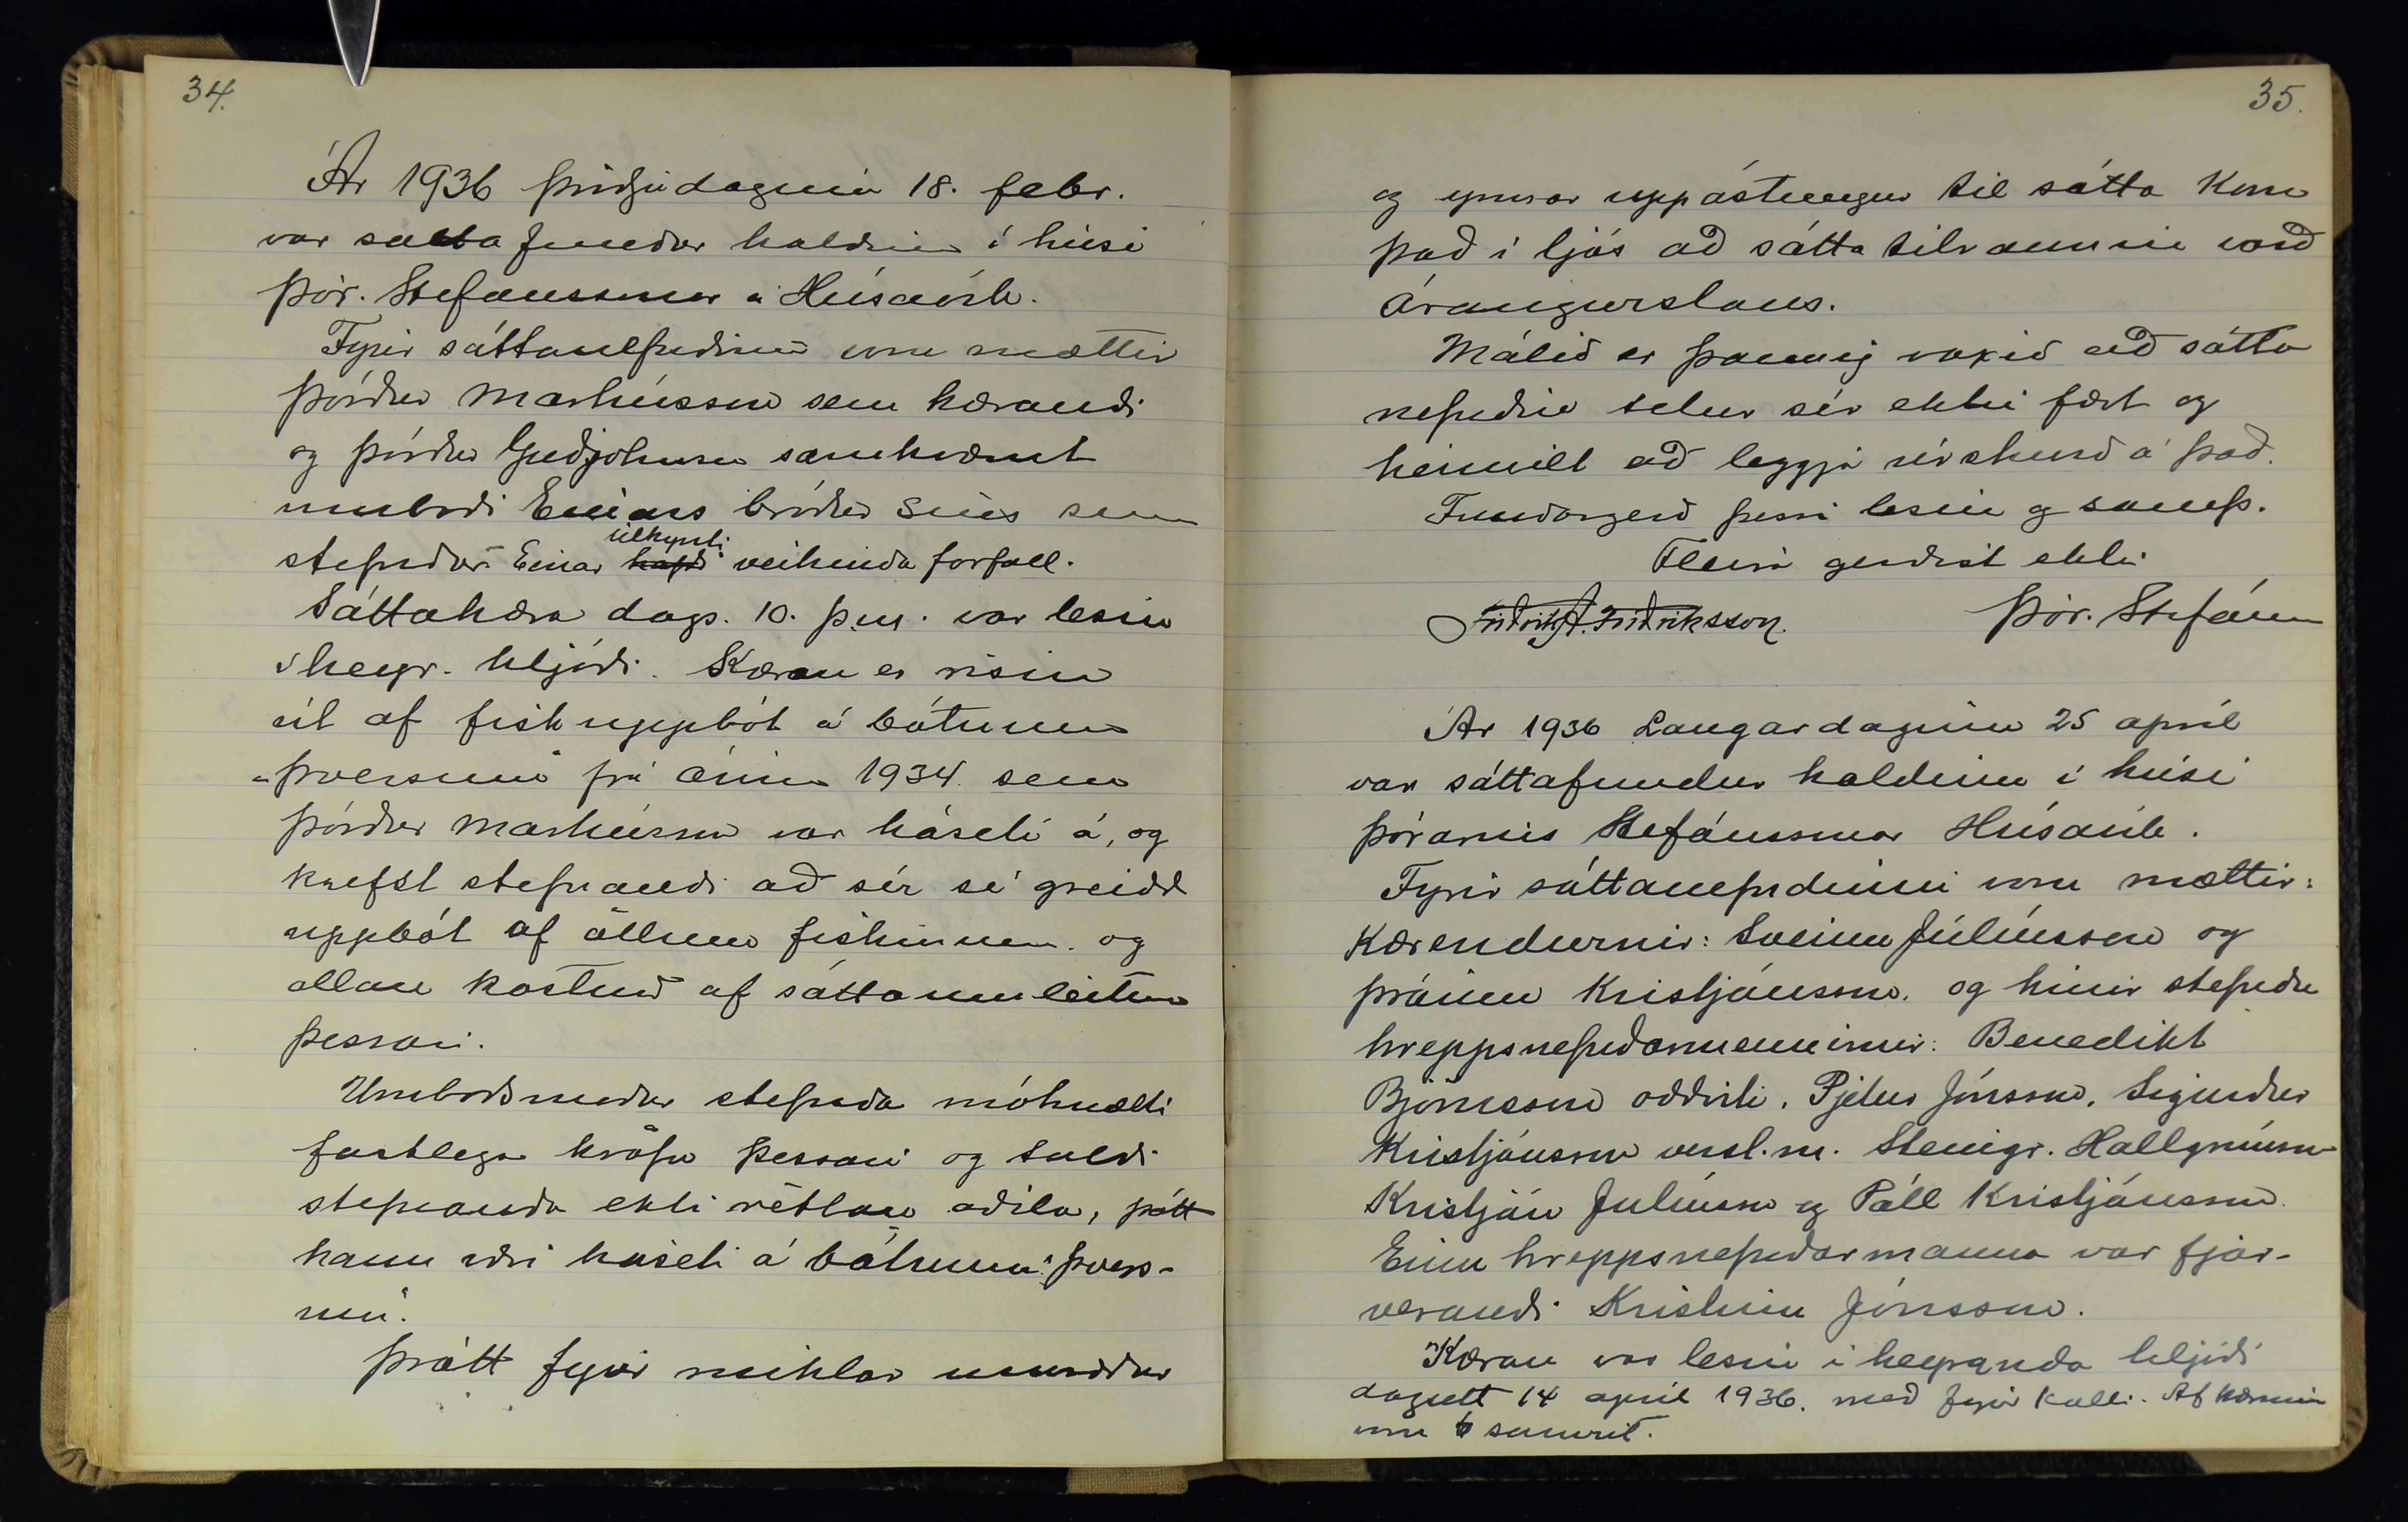 34.
Ár 1936 þriðjudaginn 18. febr.
var sáttafundur haldinn í húsi
Þór. Stefánssonar á Húsavík.
Fyrir sáttanefndinni voru mættir
Þórður Markússon sem kærandi
og Þórður Guðjohnsen samkvæmt
umboði Einars bróður síns sem
stefndur. Einar hafði tilkynti veikinda forfall.
Sáttakæra dags. 10. þ.m. var lesin
í heyr. hljóði. Kæran er risin
út af fiskuppbót á bátnum
"Þversum" frá árinu 1934 sem
Þórður Markússon var háseti á, og
krefst stefnandi að sér sé greidd
uppbót af öllum fiskinum og
allan kostnað af sáttaumleitun
þessari.
Umboðsmaður stefnda mótmælti
fastlega kröfu þessari og taldi
stefnanda ekki réttan aðila, þótt
hann væri háseti á bátnum "Þvers-
um".
Þrátt fyrir miklar umræður
35.
og ymsar uppástungur til sátta kom
það í ljós að sátta tilraunin varð
árangurslaus.
Málið er þannig vaxið að sátta
nefndin telur sér ekki fært og
heimilt að leggja úrskurð á það.
Fundargerð þessi lesin og samþ.
Fleira gerðist ekki
Friðrik A. Friðriksson. Þór. Stefánsson
Ár 1936 Laugardaginn 25 apríl
var sáttafundur haldinn í húsi
Þórarins Stefánssonar Húsavík.
Fyrir sáttanefndinni voru mættir:
Kærendurnir: Sveinn Júlíusson og
Þráinn Kristjánsson. og hinir stefndu
hreppsnefndarmennirnir: Benedikt
Björnsson oddviti, Pjetur Jónsson, Sigurður
Kristjánsson versl.m. Steingr. Hallgrímsson
Kristján Júlíusson og Páll Kristjánsson.
Einn hreppsnefndarmanna var fjar-
verandi Kristinn Jónsson.
Kæran var lesin í heyranda hljóði
dagsett 14 apríl 1936. með fyrirkalli. Af kærunni
voru 6 samrit.